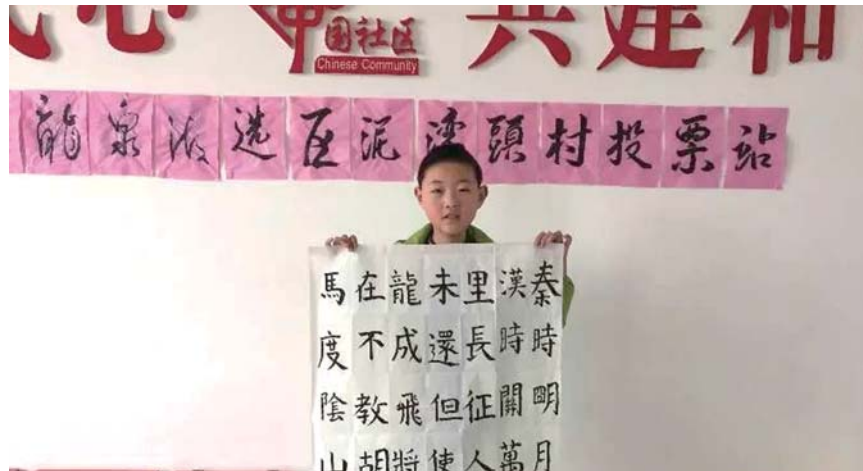 心
中国社区
Chinese Community
共建和
龍泉选区泥湾頭村投票站
秦時明月
漢時關萬
里長征人
未還但使
龍成飛將
在不教胡
馬度陰山